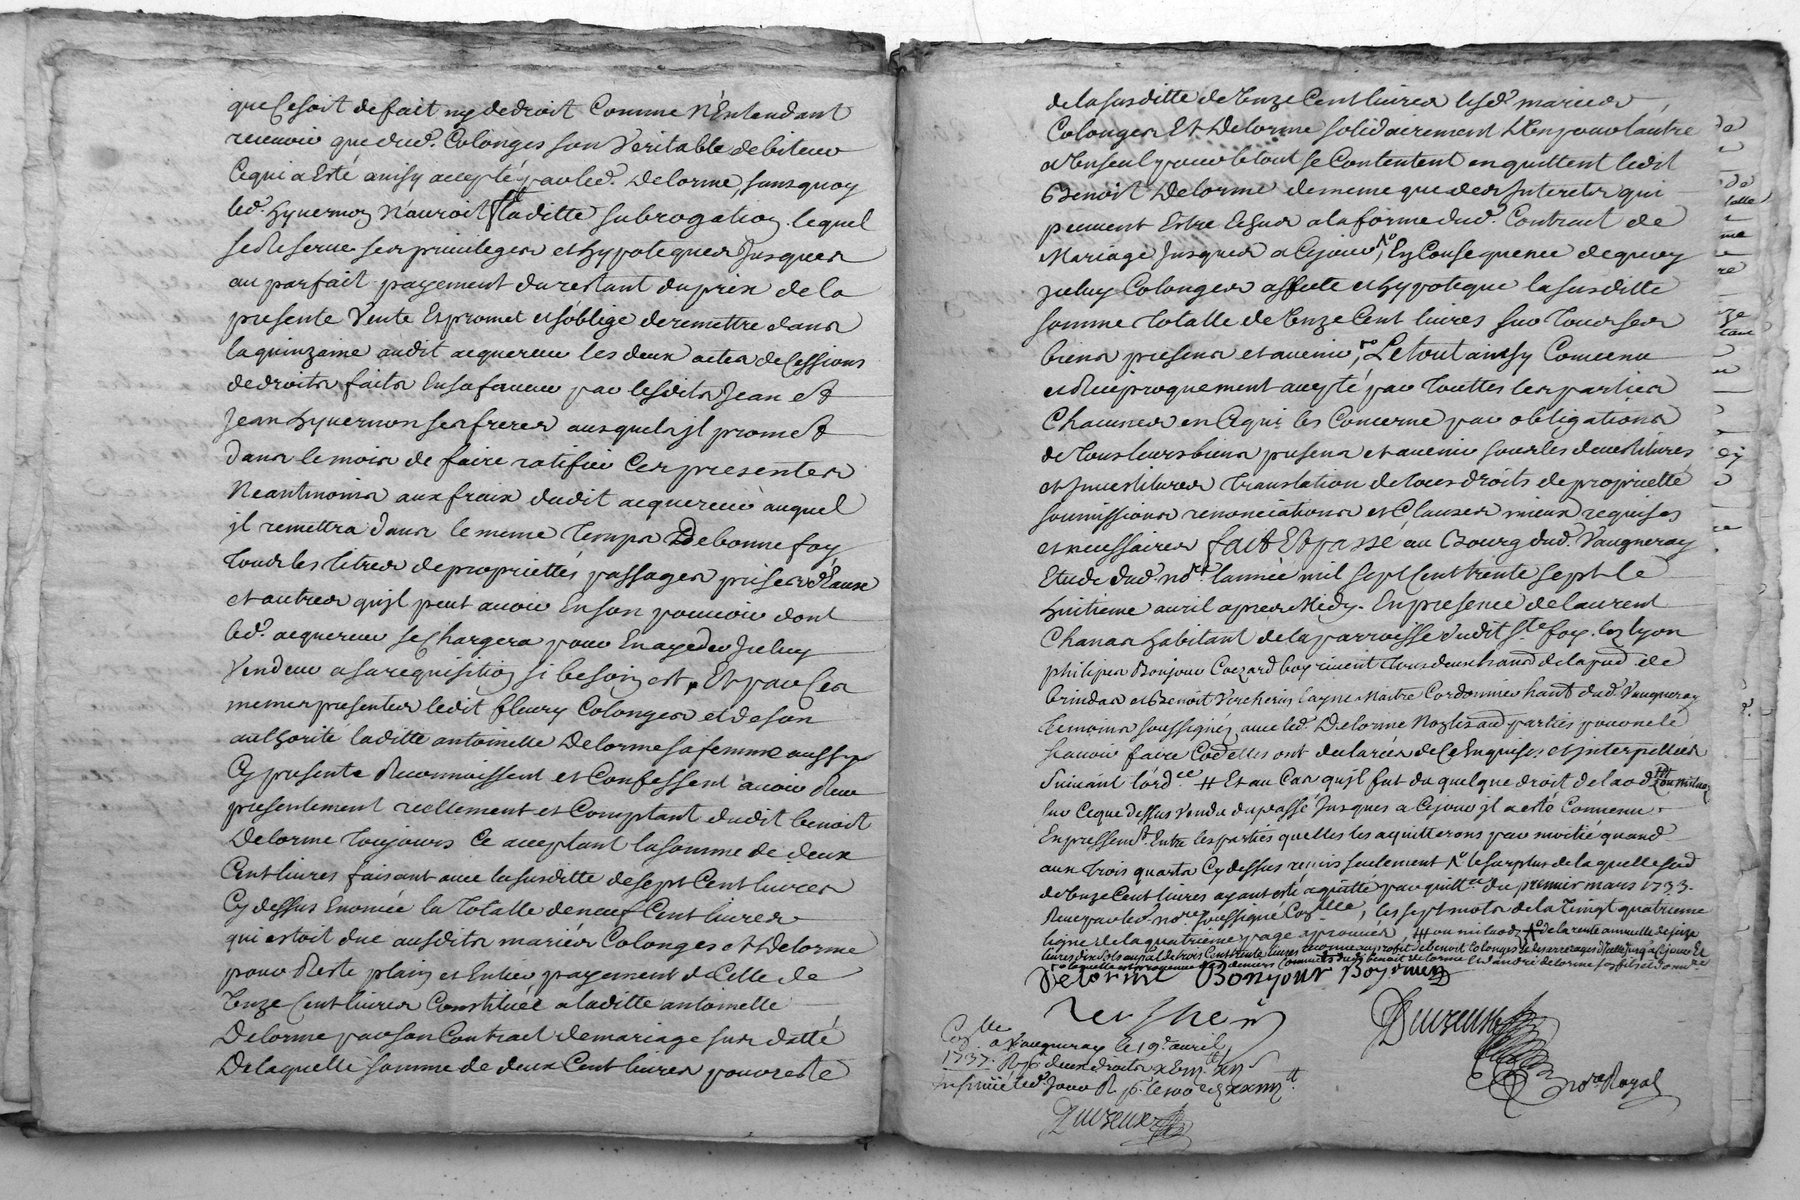 que ce soit de fait ny de droit Comme N'Entendant
recevoir que dud. Colonges son Veritable debiteur
Ce qui a Esté ainsy accepté par led. Delorme, sans quoy
led. hyvernon N'auroit laditte subrogation lequel
se Reserve ses privileges et hypoteques Jusques
au parfait payement du restant du prix de la
presente Vente Et promet et s'oblige de remettre dans
la quinzaine audit acquereur les deux actes de Cessions
de droits faits En sa faveur par lesdits Jean et
Jean hyvernon ses freres ausquels jl promet
dans le mois de faire ratifier Ces presentes
Neantmoins aux fraix dudit acquereur auquel
jl remettra dans le meme Temps De bonne foy
Tous les titres de propriettés passages prises d'Eaux
et autres qu'jl peut avoir En son pouvoir dont
led. acquereur se Chargera pour En ayder Jceluy
Vendeur a sa requisition si besoin est, Et par Ces
memes presentes ledit fleury Colonges et de son
authorité laditte antoinette Delorme sa femme aussy
Cy presente Reconnoissent et Confessent avoir Receu
presentement reellement et Comptant dudit benoit
Delorme Toujours Ce acceptant la somme de deux
Cent livres faisant avec la susditte de sept Cent livres
Cy dessus Enoncée la Totalle de neuf Cent livres
qui estoit due ausdits mariés Colonges et Delorme
pour Reste plain et Entier payement de Celle de
Onze Cent livres Constituée a laditte antoinette
Delorme par son Contrat de mariage sus datté
De laquelle somme de deux Cent livres pour reste
de la susditte de Onze Cent livres lesd. mariés
Colonges Et Delorme solidairement L'un pour l'autre
et un seul pour le tout se Contentent en quittent ledit
Benoit Delorme de meme que des Interets qui
peuvent Estre Echus a la forme dud. Contrat de
Mariage Jusques a Cejour, En Consequence de quoy
jceluy Colonges affecte et hypoteque la susditte
somme Totalle de Onze Cent livres sur Tous ses
biens presens et avenir, Le tout ainsy Convenu
et Reciproquement accepté par Touttes les parties
Chacunes en Ce qui les Concerne par obligations
de Tous leurs biens presens et avenir sous les devestitures
et Jnvestitures Translation de tous droits de propriette
soumissions renonciations et Clauses mieux requises
et necessaires fait Et passé au Bourg dud. Vaugneray
Etude dud. nore. l'année mil sept Cent trente sept le
huitieme avril apres Midy. En presence de laurent
Chanas habitant de la parroisse dudit Ste foy lez lyon
philipes Bonjour Boyrivent tous deux de la par. de
brindas et Benoit Vercherin layné Maitre Cordonnier hant. dud. Vaugneray
Temoins soussignés avec led. Delorme Non lesd. parties pour ne le
scavoir faire Comme elles ont declarées de Ce Enquises et interpellées
Suivant l'ordce. # Et au Cas qu'jl fut du quelque droit de laods
sur Ce que dessus Vendu du passé Jusques a Cejour jl a esté Convenu
Expressemt. Entre les parties quelles les aquitterons par moitié quand
aux Trois quarts Cy dessus remis seulement le surplus de laquelle sod.
de Onze Cent livres ayant esté aquitté par quittce. du premier mars 1733.
Receu par led. nore. soussigné Conllé, les sept mots de la Vingt quatrieme
ligne de la quatrieme page aprouvés de la rente annuelle de seize
livres dix sols au pal de trois Cent trente livres
Delorme Bonjour Boyrivent
Vercherin
Duvzeux nore Royal
Conllé a Vaugneray le 19e avril
1737. R p. deux droits
Insinué led. Jour R p.
Duvzeux